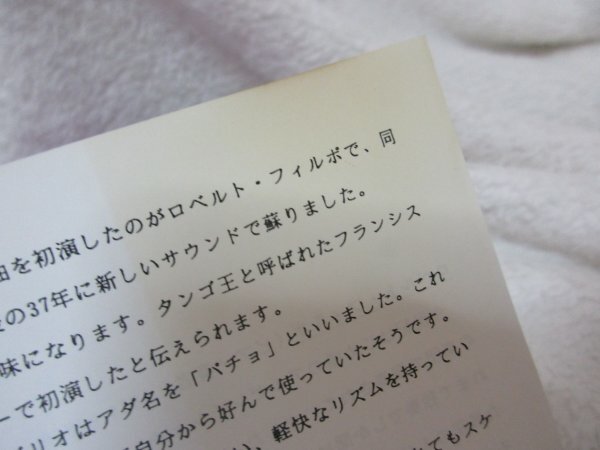 を初演したのがロベルト・フィルポで、同
の37年に新しいサウンドで蘇りました。
味になります。タンゴ王と呼ばれたフランシス
ーで初演したと伝えられます。
リオはアダ名を「パチョ」といいました。これ
自分から好んで使っていたそうです。
、軽快なリズムを持ってい
てもスケ